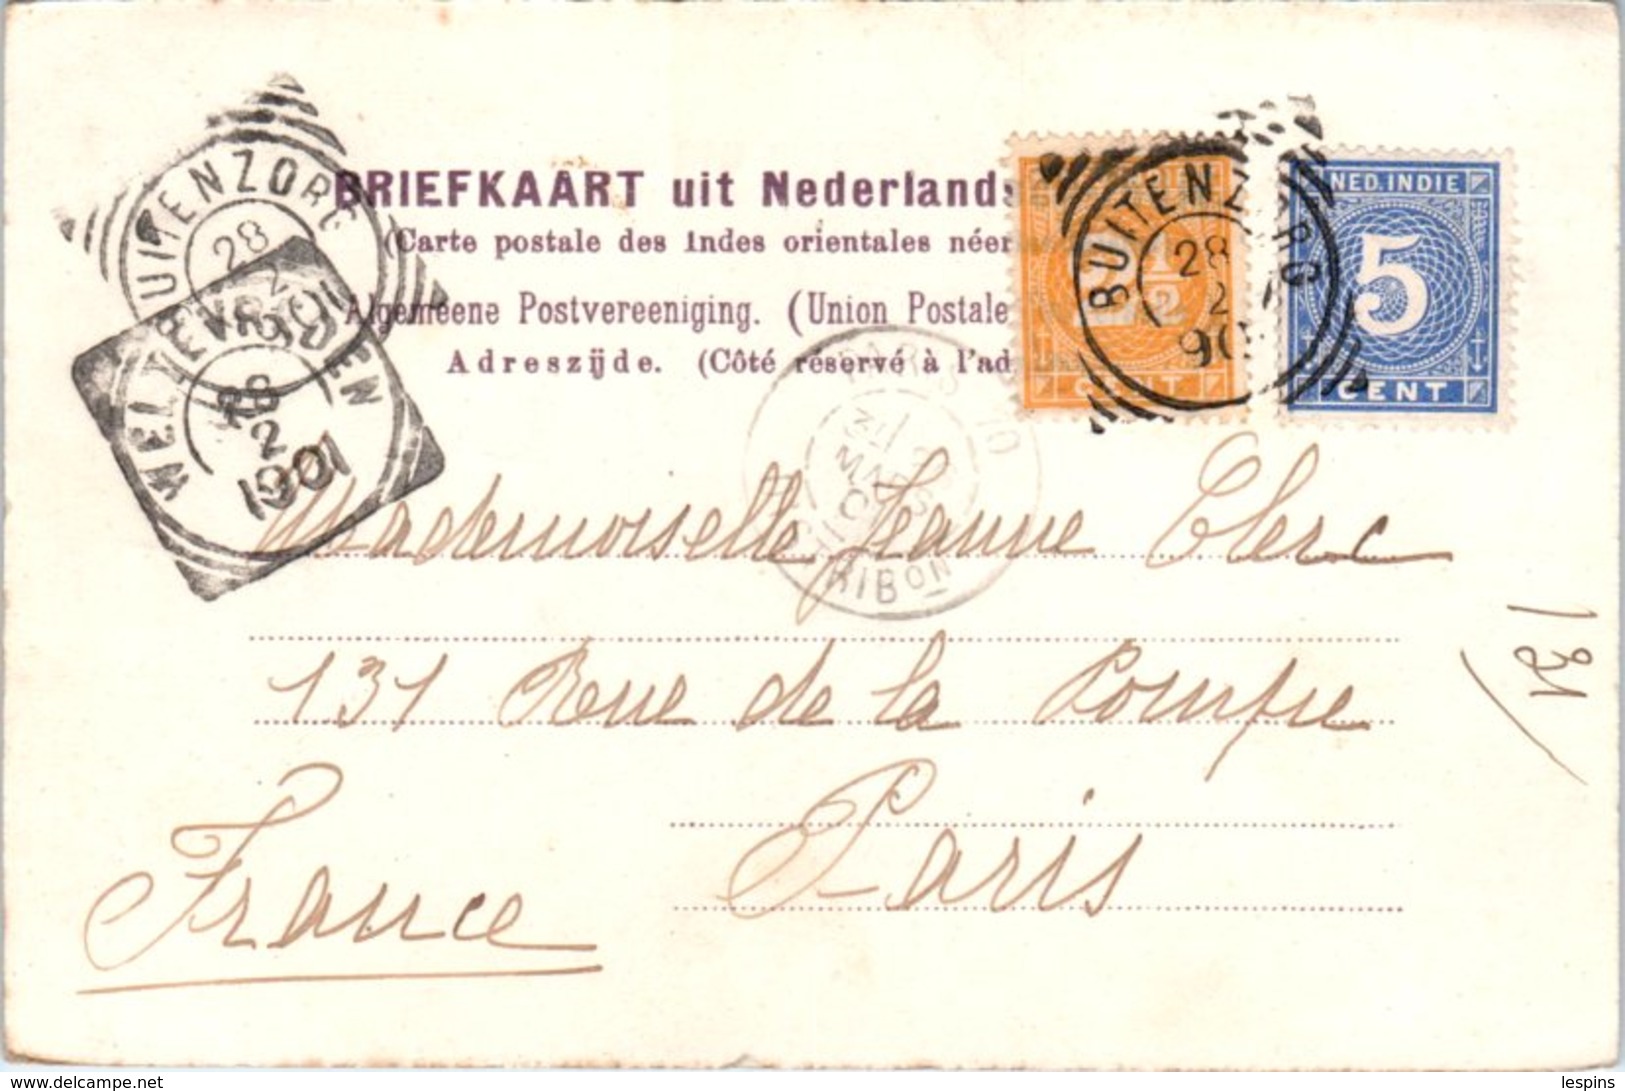 BRIEFKAART uit Nederlands
(Carte postale des Indes orientales néer
Algemeene Postvereeniging. (Union Postale
Adreszijde. (Côté réservé à l'ad
BUITENZORG
28
2
1901
WELTEVREDEN
28
2
1901
BUITENZORG
28
2
190
2 1/2
CENT
NED. INDIE
5
CENT
PARIS
MARS
RIBON
Mademoiselle Jeanne Clerc
131 Rue de la Pompe
Paris
France
delcampe.net
lespins